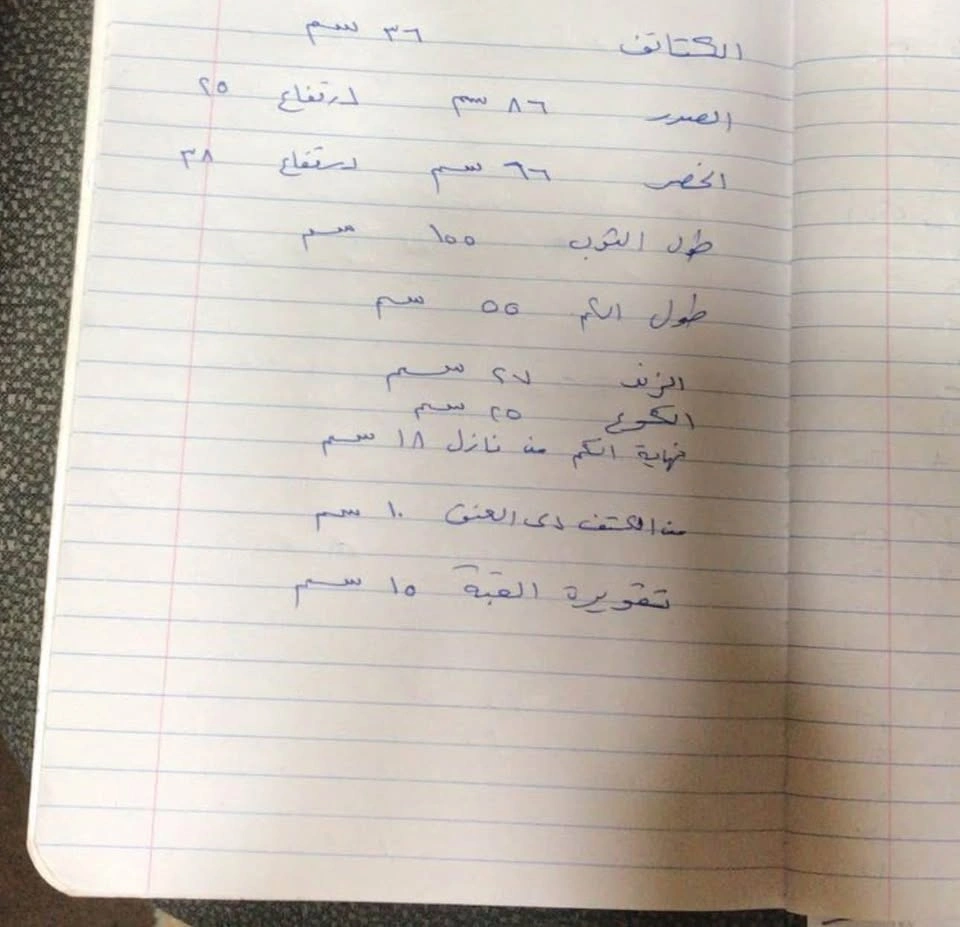 الكتاتف ٣٦ سم
الصدر ٨٦ سم ارتفاع ٢٥
الخصر ٦٦ سم ارتفاع ٣٨
طول الثوب ١٥٥ سم
طول الكم ٥٥ سم
الزند ٢٧ سم
الكوع ٢٥ سم
نهاية الكم من نازل ١٨ سم
من الكتف لدى العنق ١٠ سم
تقويرة القبة ١٥ سم